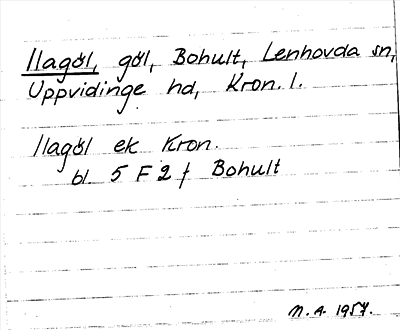 Ilagöl, göl, Bohult, Lenhovda sn,
Uppvidinge hd, Kron. l.
Ilagöl ek Kron.
bl. 5 F 2 f Bohult
M. A. 1957.